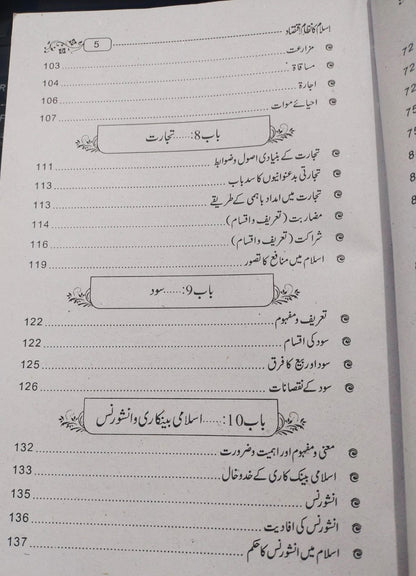 اسلام کا نظام اقتصاد 5
مزارعت 103
مساقاۃ 104
اجارۃ 106
احیائے موات 107
باب 8:...... تجارت
تجارت کے بنیادی اصول و ضوابط 111
تجارتی بدعنوانیوں کا سدباب 113
تجارت میں امداد باہمی کے طریقے 113
مضاربت (تعریف و اقسام) 114
شراکت (تعریف و اقسام) 116
اسلام میں منافع کا تصور 119
باب 9:...... سود
تعریف و مفہوم 122
سود کی اقسام 122
سود اور بیع کا فرق 125
سود کے نقصانات 126
باب 10:...... اسلامی بینکاری و انشورنس
معنی و مفہوم اور اہمیت و ضرورت 132
اسلامی بینک کاری کے خدوخال 133
انشورنس 135
انشورنس کی افادیت 136
اسلام میں انشورنس کا حکم 137